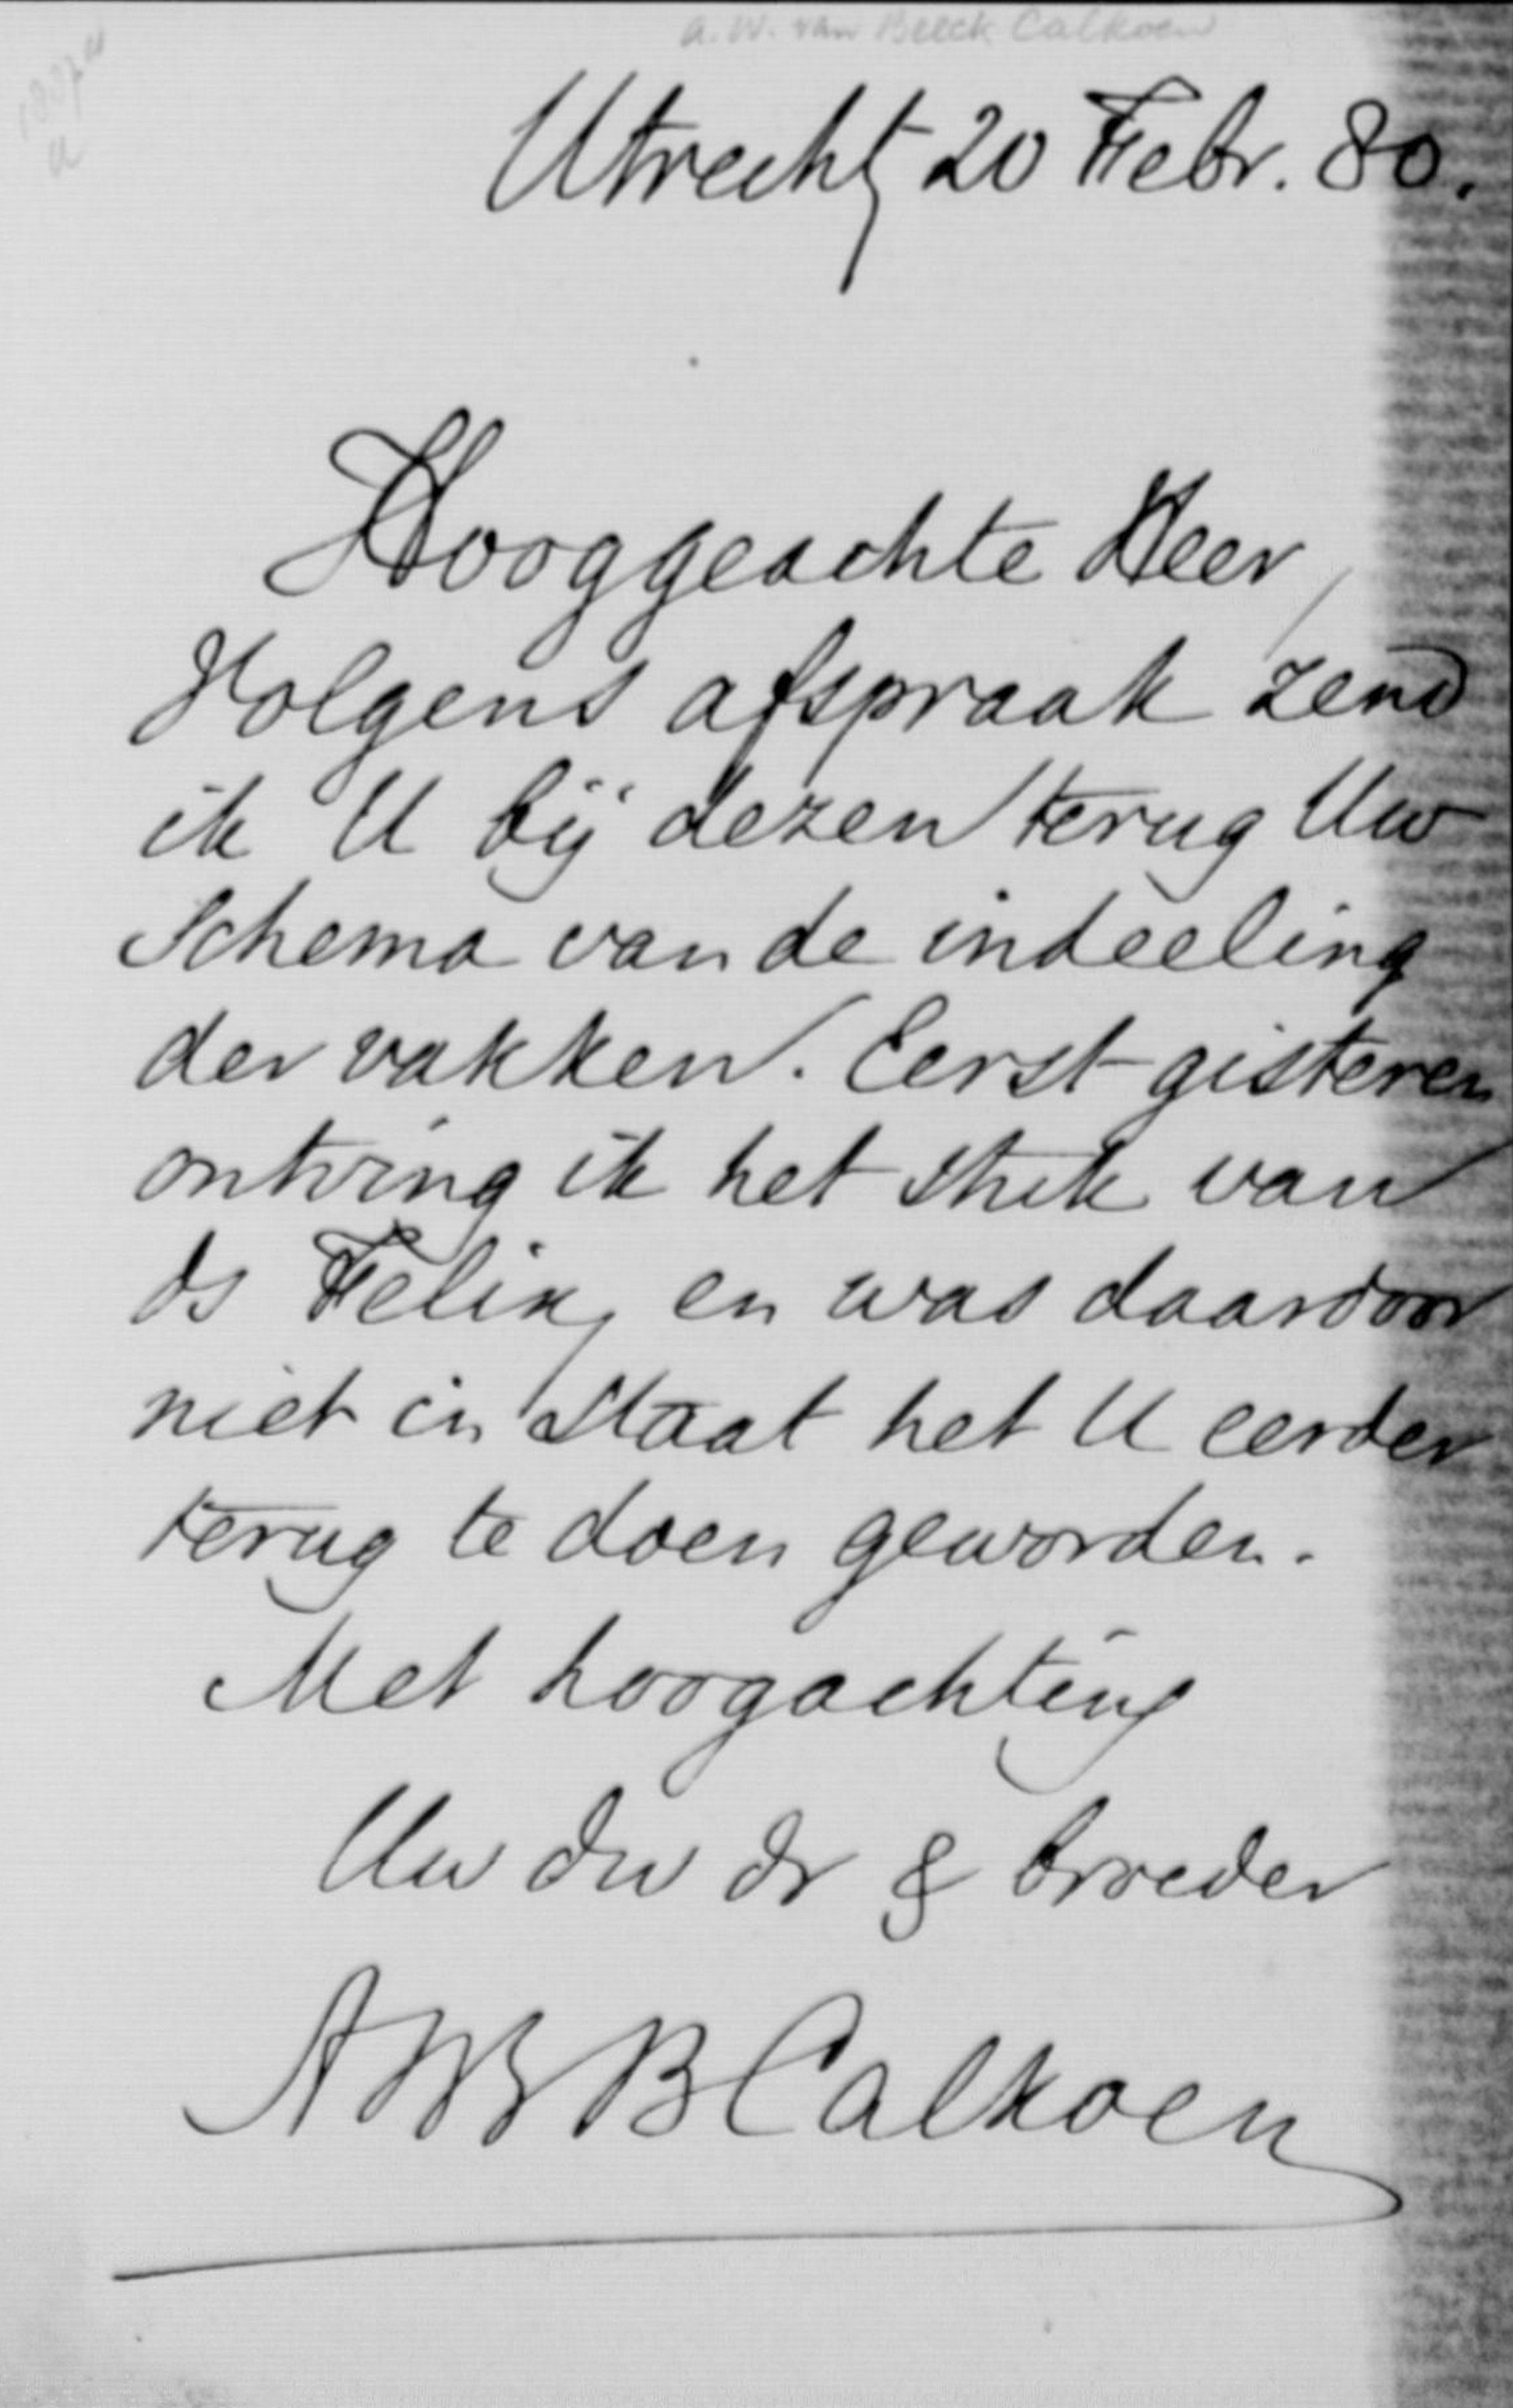 A.W. van Beeck Calkoen
Utrecht, 20 Febr. 80.
Hooggeachte Heer,
Volgens afspraak zend
ik U bij dezen terug Uw
Schema van de indeeling
der vakken. Eerst gisteren
ontving ik het stuk van
ds Felix, en was daardoor
niet in staat het U eerder
terug te doen geworden.
Met hoogachting
Uw dw dr & broeder
AWvBCalkoen